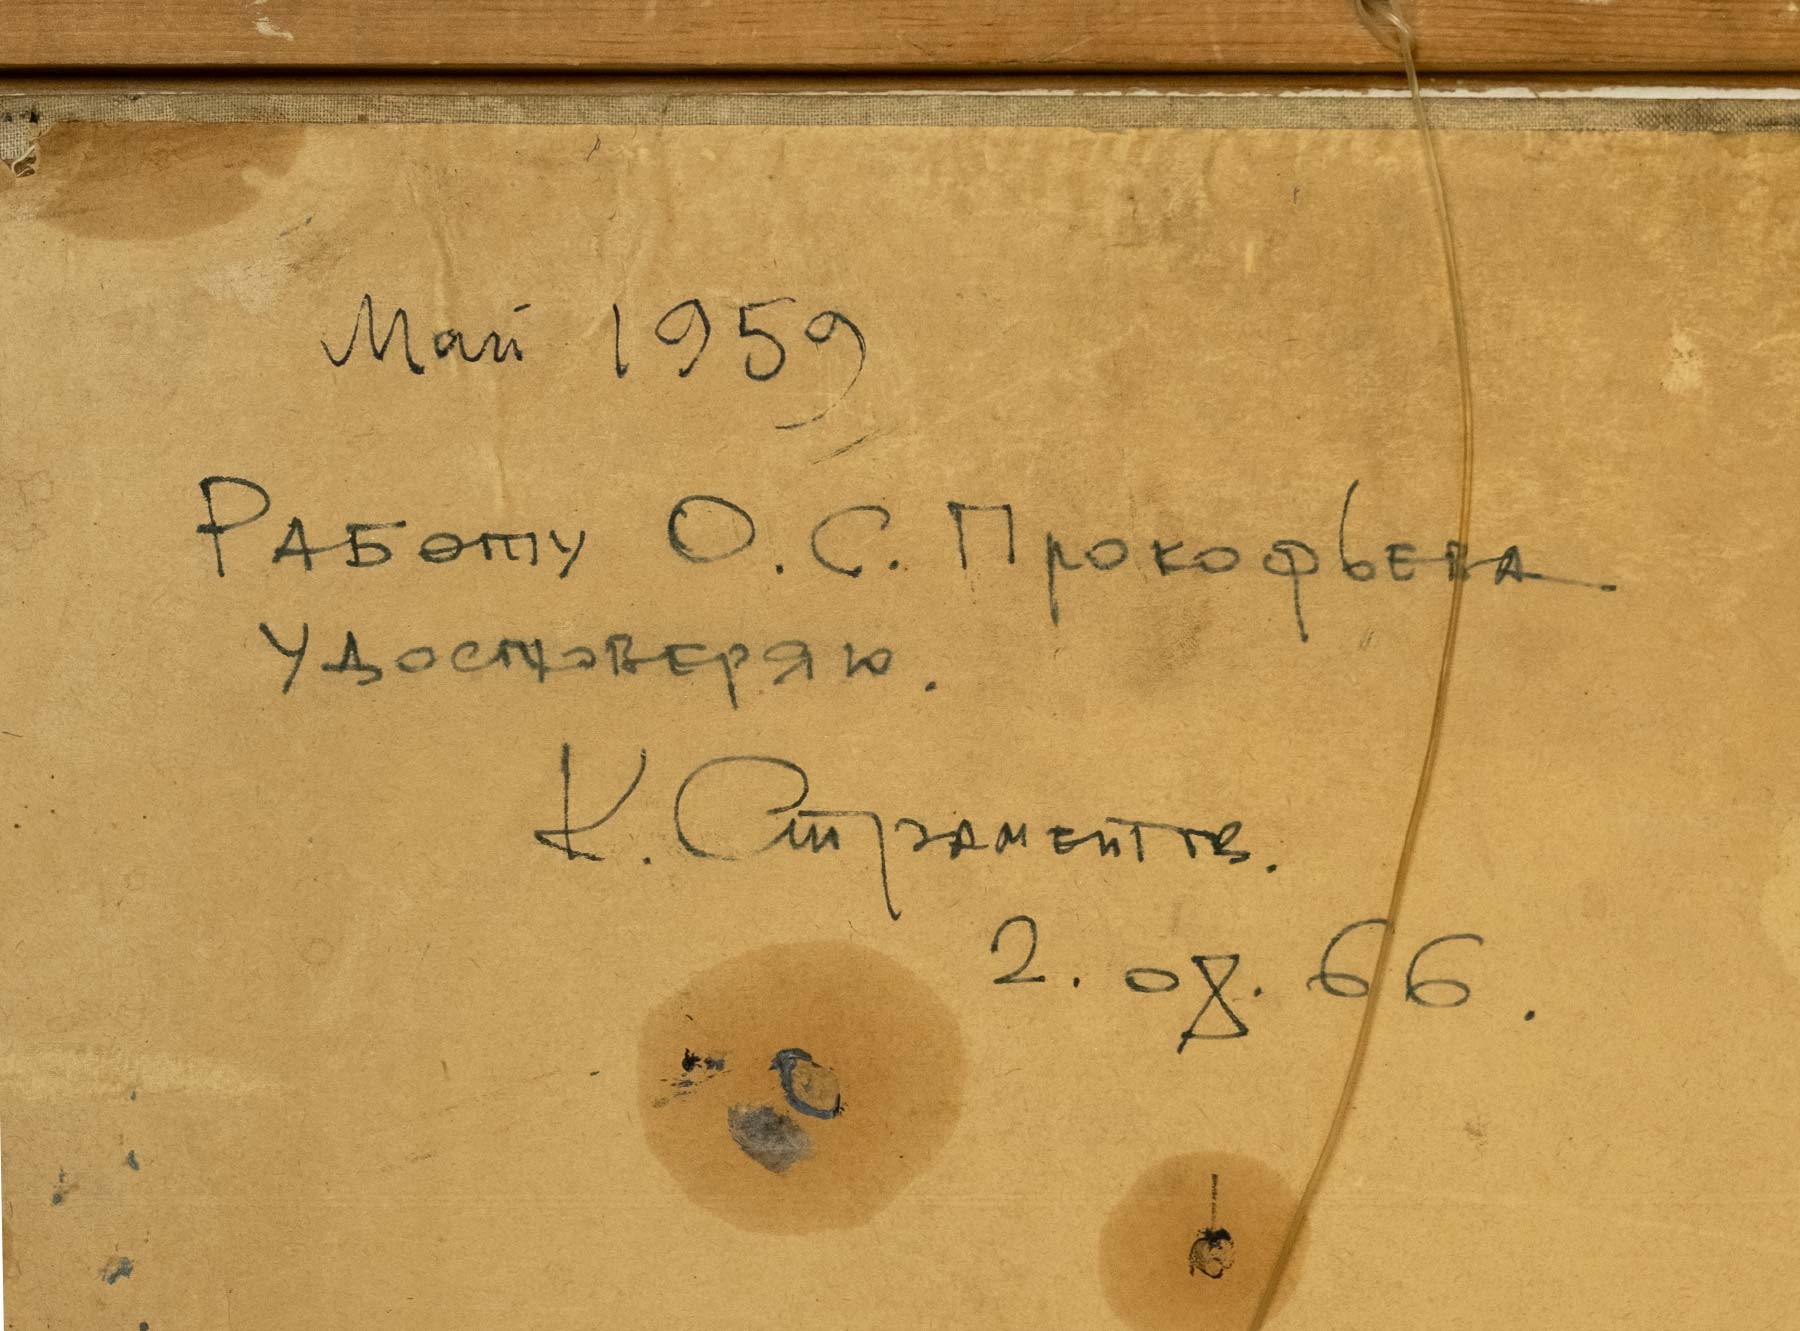 Май 1959
Работу О. С. Прокофьева
удостоверяю.
К. Страментов.
2. 0X. 66.